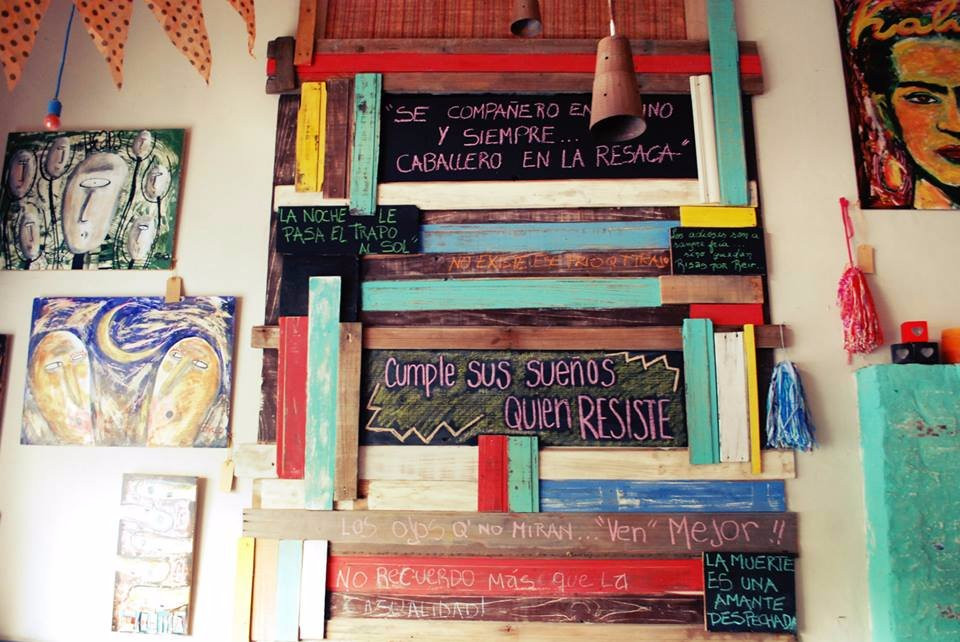 "SE COMPAÑERO EN INO
Y SIEMPRE...
CABALLERO EN LA RESACA"
LA NOCHE LE
PASA EL TRAPO
AL SOL"
NO EXISTE ESE FRIO Q'
Los adioses son a
sangre fria...
sino quedan
Risas por Reir...
Cumple sus sueños
Quien RESISTE
LOS OJOS Q' NO MIRAN... "Ven" MeJOR !!
NO RECUERDO MáS QUe La
CASUALIDAD!
LA MUERTE
ES UNA
AMANTE
DESPECHADA